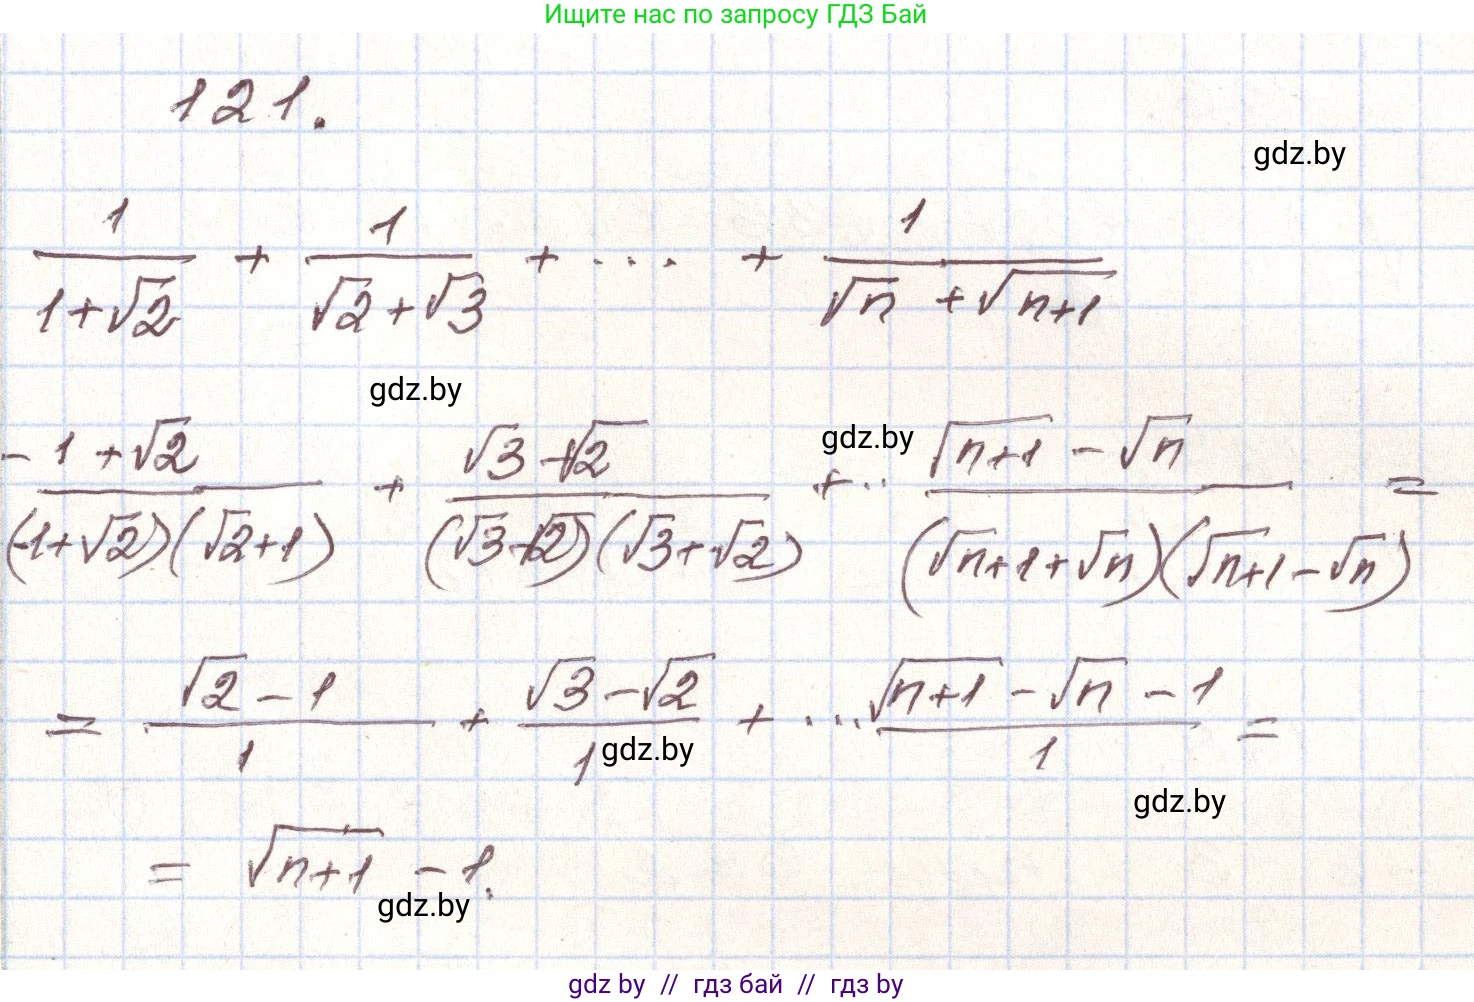 Ищите нас по запросу ГДЗ Бай
121.
gdz.by
1/(1+√2) + 1/(√2+√3) + ... + 1/(√n + √(n+1))
gdz.by
gdz.by
(-1+√2)/((-1+√2)(√2+1)) + (√3-√2)/((√3-√2)(√3+√2)) + .. (√(n+1) - √n)/((√n+1+√n)(√n+1-√n)) =
= (√2 - 1)/1 + (√3-√2)/1 + ... (√(n+1) - √n - 1)/1 =
gdz.by
gdz.by
= √(n+1) - 1.
gdz.by
gdz by // гдз бай // гдз by